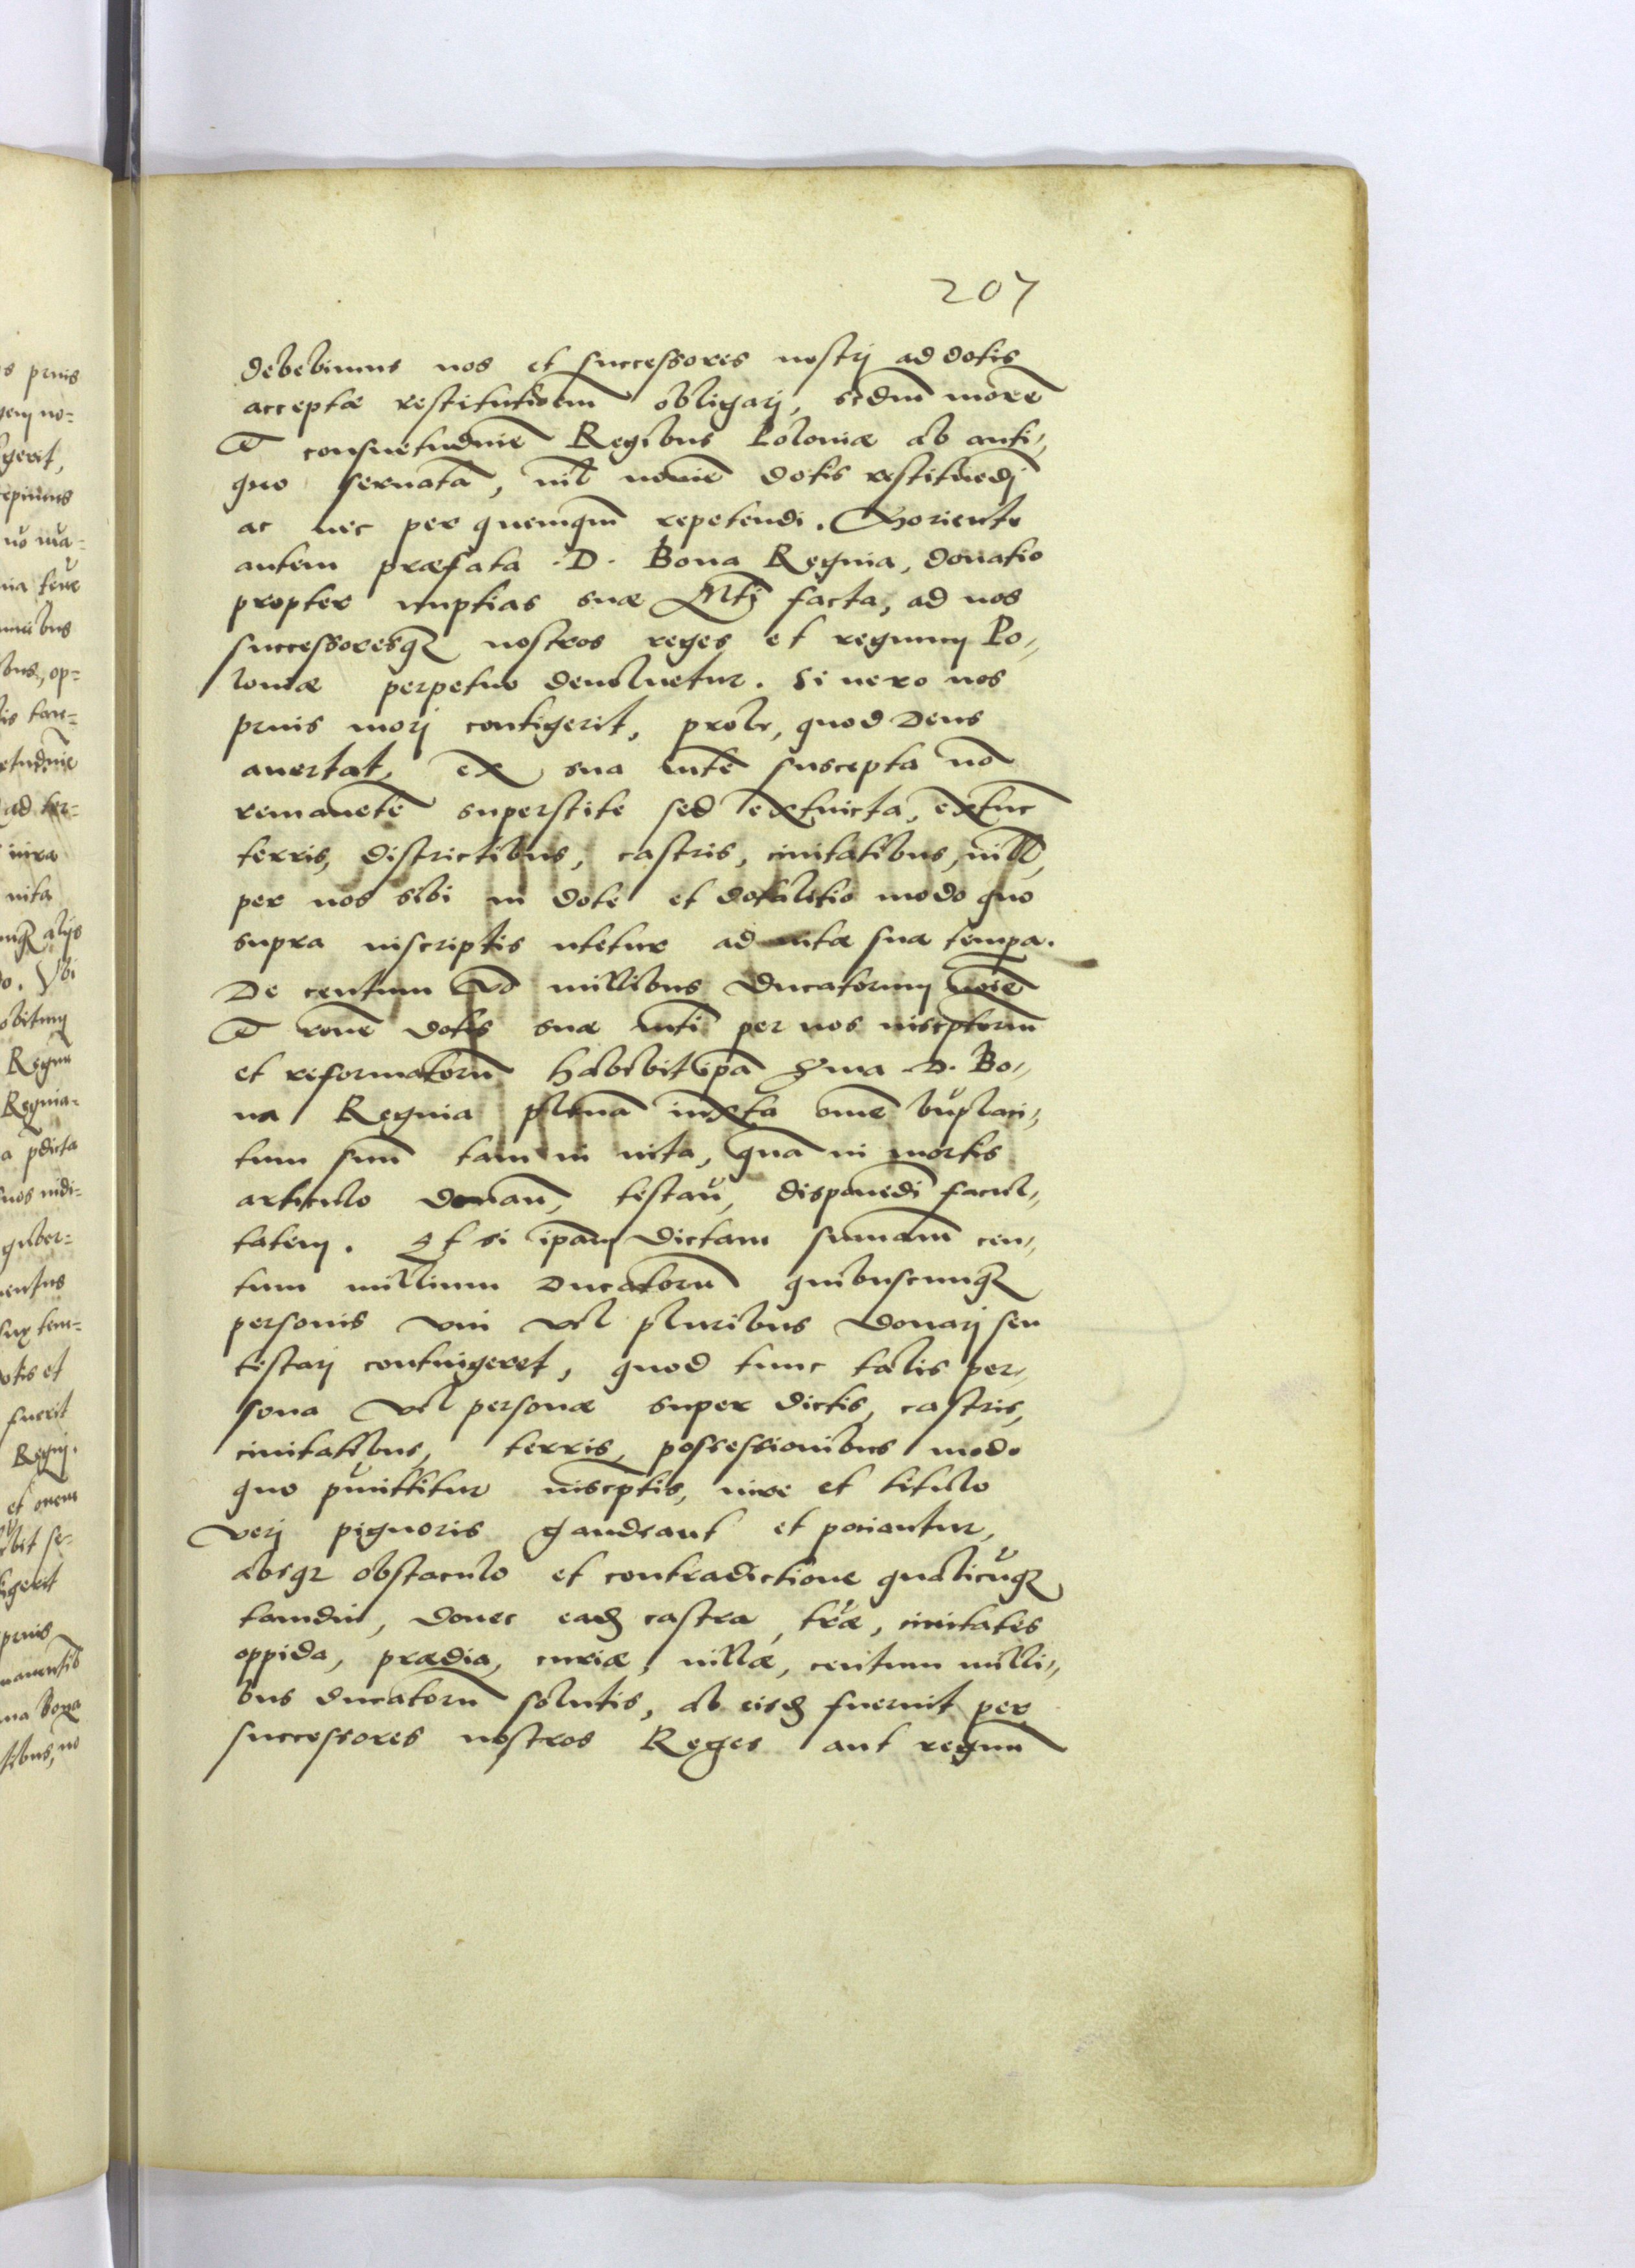 207
debebimus nos et successores nostrj ad dotis
acceptæ restitutioem̄ obligarj, scdm̄ morē
et consuetudinē Regibus Poloniæ ab anti„
quo seruatā, nil nomīe dotis restituēdj
ac nec per quemqm̄ repetendi. Moriente
autem præfata .D. Bona Regina, donatio
propter nuptias suæ Mtj facta, ad nos
successoresq̄ꝫ nostros reges et regnum Po„
loniæ perpetuo deuoluetur. Si uero nos
prius morj contigerit, prole, quod Deus
auertat, ex sua mte suscepta nō
remanētē superstite sed extincta, extūc
terris, districtibus, castris, ciuitatibus, uill̄,
per nos sibi in dote et dotalitio modo quo
supra inscriptis utetur ad uitæ suæ tempa.
De centum v̄o millibus ducatorum noīe
et rone dotis suæ mti per nos inscptorū
et reformatorū habebit ipā Sma D. Bo„
na Regina plenā iuxta om̄e bn̄placi„
tum suū tam in uita, quā in mortis
articulo donān̄, testān̄, disponēdi facul„
tatem. Et si ipām dictam summam cen„
tum millium ducatorū quibuscunqꝫ
personis vni vel pluribus donarj seu
testarj contingeret, quod tunc talis per„
sona vel personæ super dictis, castris,
ciuitatibus, terris, possessionibus modo
quo pmittitur inscptis, iure et titulo
verj pignoris gaudeant et potiantur,
absqꝫ obstaculo et contradictione qualicūqꝫ
tamdiu, donec eadꝫ castra, træ, ciuitates
oppida, prædia, curiæ, uillæ, centum milli„
bus ducatorū solutis, ab eisdꝫ fuerint per
successores nostros Reges aut regnū